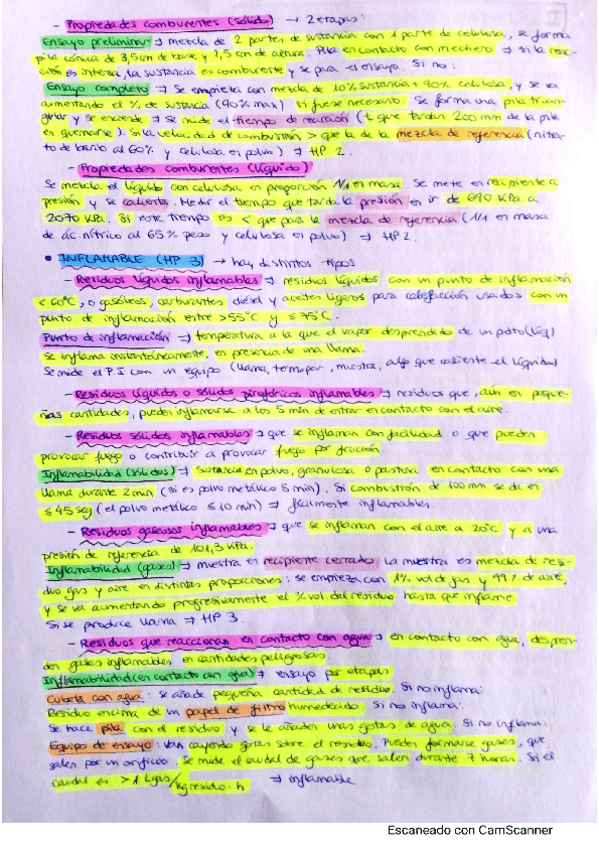 - Propiedades comburentes (sólido) → 2 etapas:
Ensayo preliminar → mezcla de 2 partes de sustancia con 1 parte de celulosa, se forma
pila cónica de 3,5cm de base y 2,5cm de altura. Pila en contacto con mechero → si la reac-
ción es intensa, la sustancia es comburente y se para el ensayo. Si no:
Ensayo completo → Se empieza con mezcla de 10% sustancia + 90% celulosa, y se va
aumentando el % de sustancia (90% max) si fuese necesario. Se forma una pila trian-
gular y se enciende → Se mide el tiempo de reacción (t que tardan 200 mm de la pila
en quemarse). Si la velocidad de combustión > que la de la mezcla de referencia (nitra-
to de bario al 60% y celulosa en polvo) → HP 2.
- Propiedades comburentes (líquido)
Se mezcla el líquido con celulosa en proporción 1/1 en masa. Se mete en recipiente a
presión y se calienta. Medir el tiempo que tarda la presión en ir de 690 KPa a
2070 KPa. Si este tiempo es < que para la mezcla de referencia (1/1 en masa
de ác. nítrico al 65% peso y celulosa en polvo) → HP2.
• INFLAMABLE (HP 3) → hay distintos tipos
- Residuos líquidos inflamables → residuos líquidos con un punto de inflamación
< 60ºC, o gasóleos, carburantes diésel y aceites ligeros para calefacción usados con un
punto de inflamación entre > 55ºC y ≤ 75ºC.
Punto de inflamación → temperatura a la que el vapor desprendido de un pdto (líq)
se inflama instantáneamente, en presencia de una llama.
Se mide el P.I con un equipo (llama, termopar, muestra, algo que caliente el líquido)
- Residuos líquidos o sólidos pirofóricos inflamables → residuos que, aún en peque-
ñas cantidades, pueden inflamarse a los 5 min de entrar en contacto con el aire.
- Residuos sólidos inflamables → que se inflaman con facilidad o que pueden
provocar fuego o contribuir a provocar fuego por fricción.
Inflamabilidad (sólidos) → Sustancia en polvo, granulosa o pastosa en contacto con una
llama durante 2 min (si es polvo metálico 5 min). Si combustión de 100 mm se da en
≤ 45 seg (el polvo metálico ≤ 10 min) → fácilmente inflamables.
- Residuos gaseosos inflamables → que se inflaman con el aire a 20ºC y a una
presión de referencia de 101,3 KPa.
Inflamabilidad (gases) → muestra en recipiente cerrado. La muestra es mezcla de resi-
duo gas y aire en distintas proporciones: se empieza con 1% vol de gas y 99% de aire,
y se va aumentando progresivamente el % vol del residuo hasta que inflame
Si se produce llama → HP 3.
- Residuos que reaccionan en contacto con agua → en contacto con agua, despren-
den gases inflamables en cantidades peligrosas
Inflamabilidad (en contacto con agua) → ensayo por etapas
Cubeta con agua: se añade pequeña cantidad de residuo. Si no inflama:
Residuo encima de un papel de filtro humedecido. Si no inflama:
Se hace pila con el residuo y se le añaden unas gotas de agua. Si no inflama:
Equipo de ensayo: van cayendo gotas sobre el residuo. Pueden formarse gases, que
salen por un orificio. Se mide el caudal de gases que salen durante 7 horas. Si el
caudal es > 1 L gas/kg residuo·h → inflamable
Escaneado con CamScanner